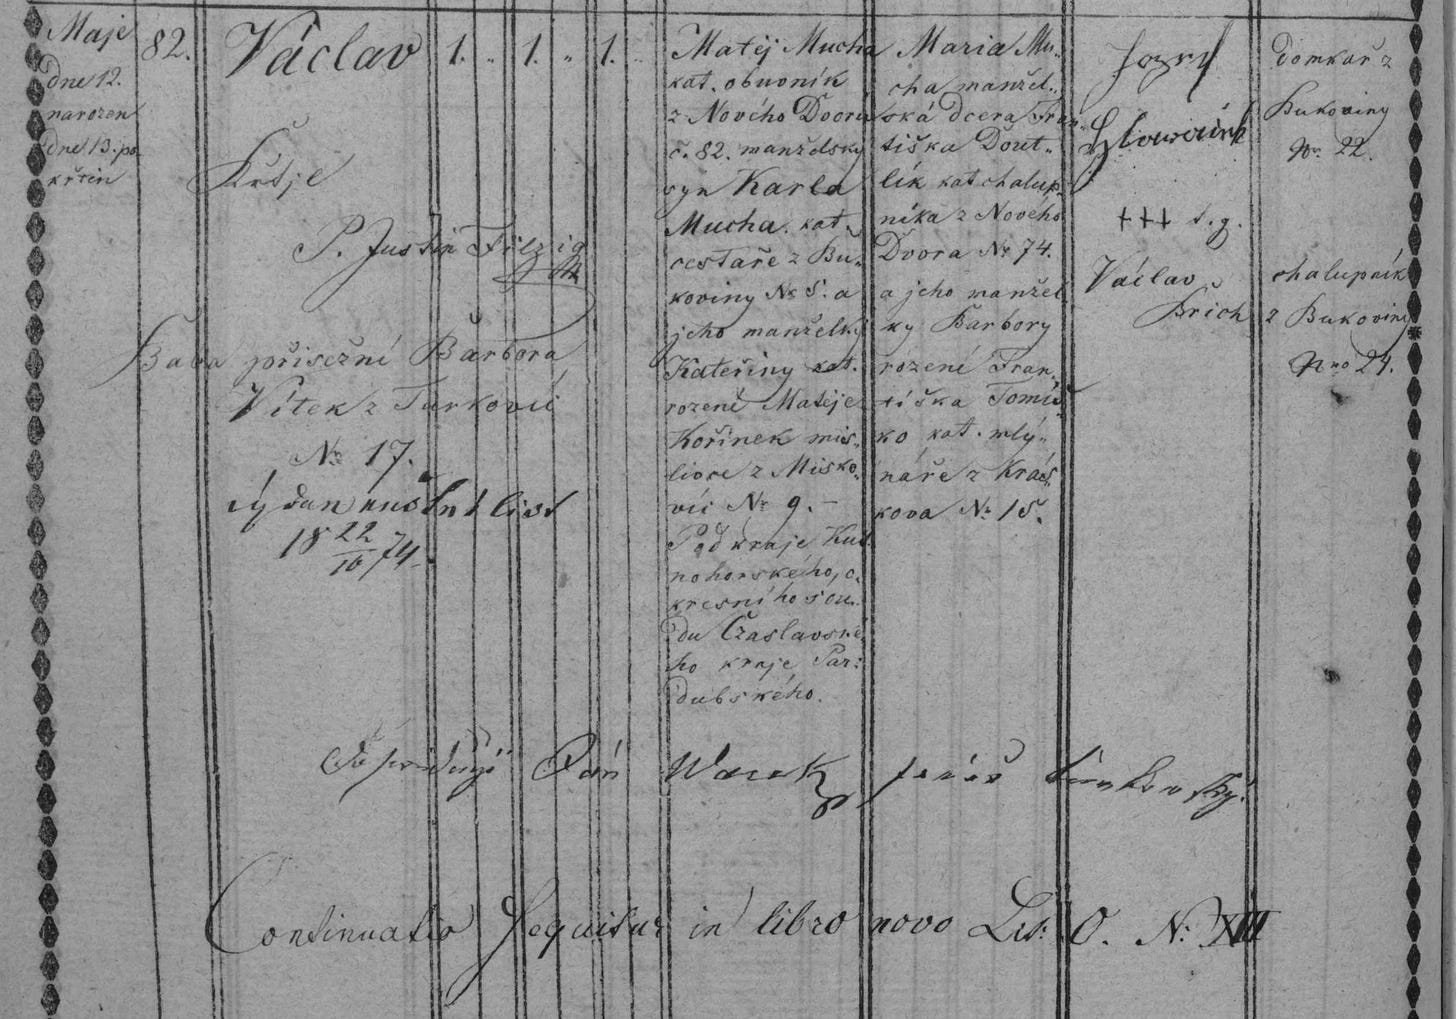 Maje
dne 12.
narozen
dne 13. po-
křtěn
82.
Václav
1. " 1. " 1. "
Křtil
P. Justin Filzig
Baba přísežní Barbora
Vítek z Turkovic
Nr 17.
list
18 22/10 74.
Matěj Mucha
kat. obuvník
z Nového Dvora
č. 82. manželský
syn Karla
Mucha. kat.
cestaře z Bu-
koviny Nr 5. a
jeho manželky
Kateřiny kat.
rozené Matěje
Kořínek mis-
livce z Misko-
vic Nr 9. –
Pod kraje Kut-
nohorského, o-
kresního sou-
du Czaslavské-
ho kraje Par-
dubského.
Maria Mu-
cha manžel-
ská dcera Fran-
tiška Dout-
lík kat chalup-
níka z Nového
Dvora Nr 74.
a jeho manžel-
ky Barbory
rození Fran-
tiška Tomíš-
ko kat. mlý-
náře z Krás-
kova Nr 15.
Jozef
+++
Václav
Břich
domkař z
Bukoviny
Nr 22.
chalupník
z Bukoviny
Nro 24.
Pán
Continuatio sequitur in libro novo Lit: O. N: XIII